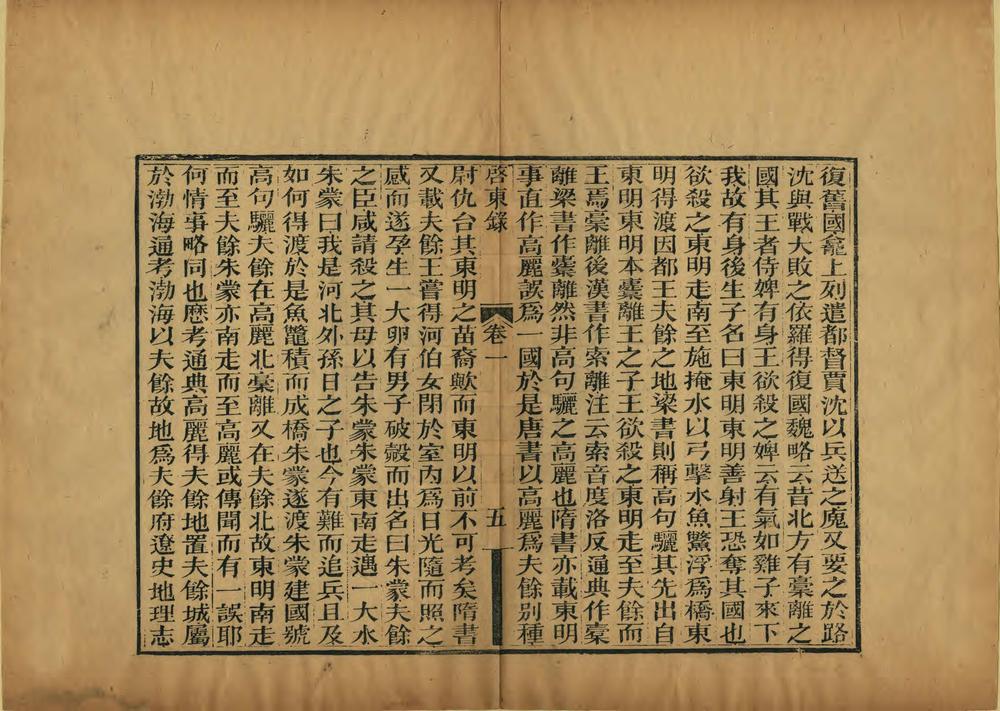 復舊國龕上列遣都督賈沈以兵送之廆又要之於路
沈與戰大敗之依羅得復國魏略云昔北方有槀離之
國其王者侍婢有身王欲殺之婢云有氣如雞子來下
我故有身後生子名曰東明東明善射王恐奪其國也
欲殺之東明走南至施掩水以弓擊水魚鱉浮爲橋東
明得渡因都王夫餘之地梁書則稱高句驪其先出自
東明東明本橐離王之子王欲殺之東明走至夫餘而
王焉槀離後漢書作索離注云索音度洛反通典作槀
離梁書作櫜離然非高句驪之高麗也隋書亦載東明
事直作高麗誤爲一國於是唐書以高麗爲夫餘别種
啓東錄
卷一
五
尉仇台其東明之苗裔歟而東明以前不可考矣隋書
又載夫餘王嘗得河伯女閉於室內爲日光隨而照之
感而遂孕生一大卵有男子破殼而出名曰朱蒙夫餘
之臣咸請殺之其母以告朱蒙朱蒙東南走遇一大水
朱蒙曰我是河北外孫日之子也今有難而追兵且及
如何得渡於是魚鼈積而成橋朱蒙遂渡朱蒙建國號
高句驪夫餘在高麗北槀離又在夫餘北故東明南走
而至夫餘朱蒙亦南走而至高麗或傳聞而有一誤耶
何情事略同也歷考通典高麗得夫餘地置夫餘城屬
於渤海通考渤海以夫餘故地爲夫餘府遼史地理志